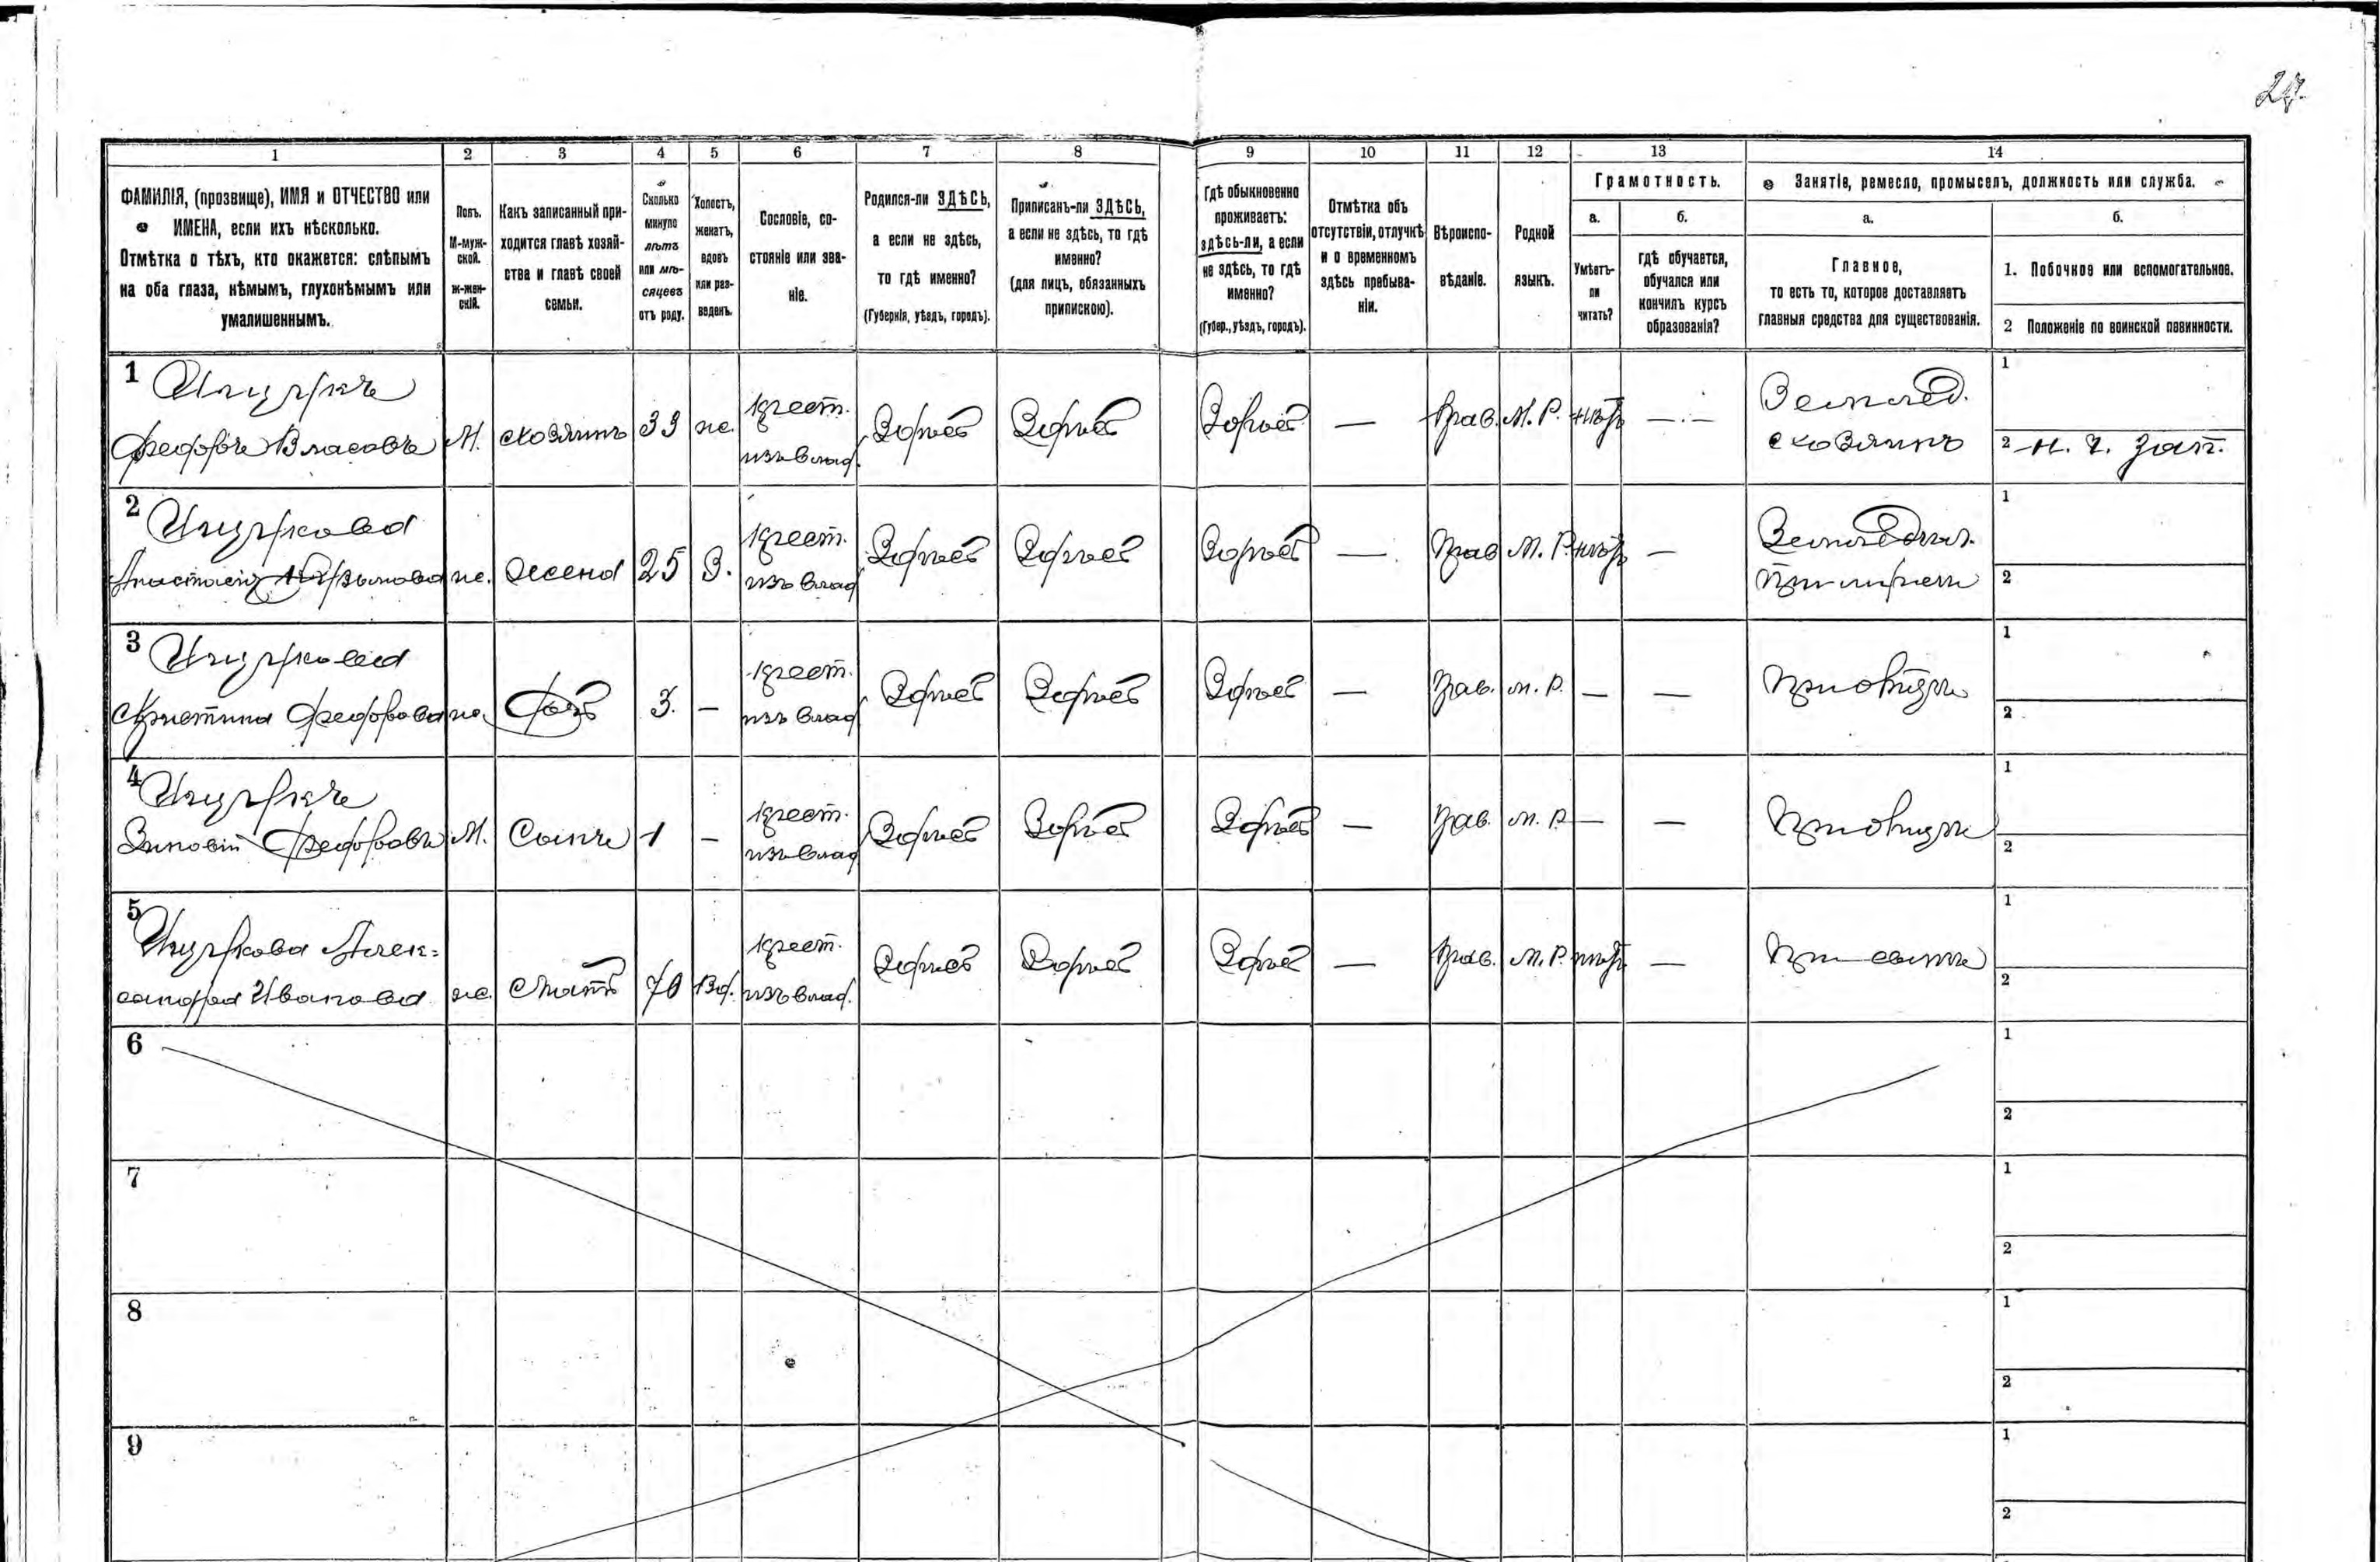 27.
1 2 3 4 5 6 7 8 9 10 11 12 13 14
ФАМИЛІЯ, (прозвище), ИМЯ и ОТЧЕСТВО или
ИМЕНА, если ихъ нѣсколько.
Отмѣтка о тѣхъ, кто окажется: слѣпымъ
на оба глаза, нѣмымъ, глухонѣмымъ или
умалишеннымъ.
Полъ.
М-муж-
ской.
Ж-жен-
скій.
Какъ записанный при-
ходится главѣ хозяй-
ства и главѣ своей
семьи.
Сколько
минуло
лѣтъ
или мѣ-
сяцевъ
отъ роду.
Холостъ,
женатъ,
вдовъ
или раз-
веденъ.
Сословіе, со-
стояніе или зва-
ніе.
Родился-ли ЗДѢСЬ,
а если не здѣсь,
то гдѣ именно?
(Губернія, уѣздъ, городъ).
Приписанъ-ли ЗДѢСЬ,
а если не здѣсь, то гдѣ
именно?
(для лицъ, обязанныхъ
припискою).
Гдѣ обыкновенно
проживаетъ:
здѣсь-ли, а если
не здѣсь, то гдѣ
именно?
(Губер., уѣздъ, городъ).
Отмѣтка объ
отсутствіи, отлучкѣ
и о временномъ
здѣсь пребыва-
ніи.
Вѣроиспо-
вѣданіе.
Родной
языкъ.
Грамотность.
а.
Умѣетъ-
ли
читать?
б.
гдѣ обучается,
обучался или
кончилъ курсъ
образованія?
Занятіе, ремесло, промыселъ, должность или служба.
а.
Главное,
то есть то, которое доставляетъ
главныя средства для существованія.
б.
1. Побочное или вспомогательное.
2 Положеніе по воинской повинности.
1
Федоръ Власовъ М. хозяинъ 33 ж. крест. изъ влад. Здѣсь Здѣсь Здѣсь — Прав. М. Р. нѣтъ —
Землед.
хозяинъ
1
2 н. ч. зап.
2
Анастасія ж. жена 25 З. крест. изъ влад. Здѣсь Здѣсь Здѣсь — Прав М. Р. нѣтъ —
при мужѣ
1
2
3
Христина Федорова ж. Дочь 3. — крест. изъ влад Здѣсь Здѣсь Здѣсь — Прав. М. Р. — —
при отцѣ
1
2
4
Зиновій Федоровъ М. Сынъ 1 — крест. изъ влад Здѣсь Здѣсь Здѣсь — Прав. М. Р. — —
при отцѣ
1
2
5
Алек-
сандра Иванова ж. мать 70 Вд. крест. изъ влад. Здѣсь Здѣсь Здѣсь — Прав. М. Р. нѣтъ —
при сынѣ
1
2
6
1
2
7
1
2
8
1
2
9
1
2